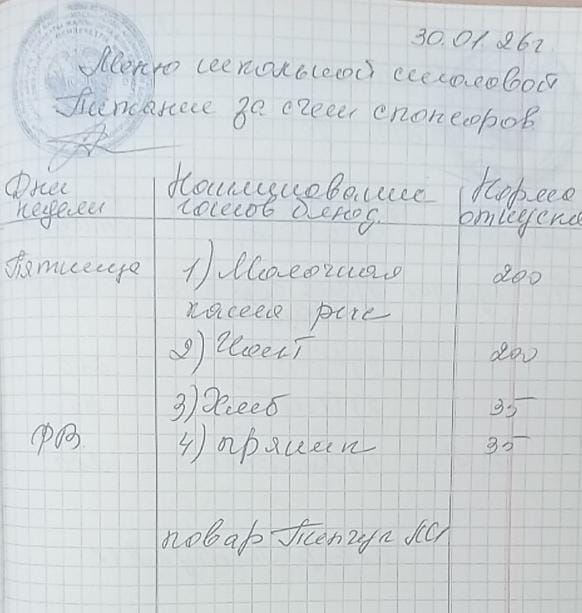 30.01.26г
Меню школьной столовой
Питание за счет спонсоров
Дни недели
Наименование готов блюд.
Норма отпуска
Пятница 1) Молочная 200
каша рис
2) Чай 200
3) Хлеб 35
ФВ. 4) пряник 35
повар